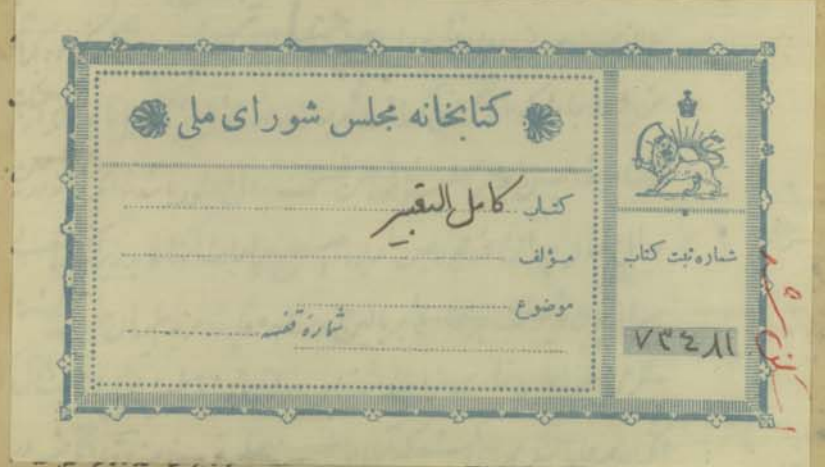 کتابخانه مجلس شورای ملی
کتاب کامل التعبیر
مؤلف
موضوع
شمارۀ قفسه
شماره ثبت کتاب
۷۳٤۸۱